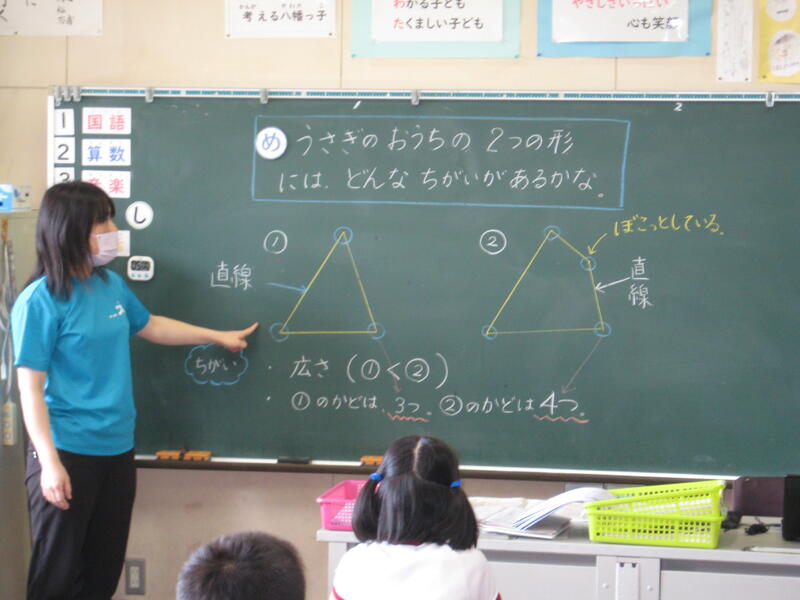 考える八幡っ子
わかる子ども
たくましい子ども
やさしさいっぱい
心も笑顔
1 国語
2 算数
3 音楽
し
め うさぎのおうちの2つの形
には、どんなちがいがあるかな。
①
②
ぼこっとしている。
直線
直線
ちがい
・広さ(①<②)
・①のかどは、3つ。②のかどは4つ。